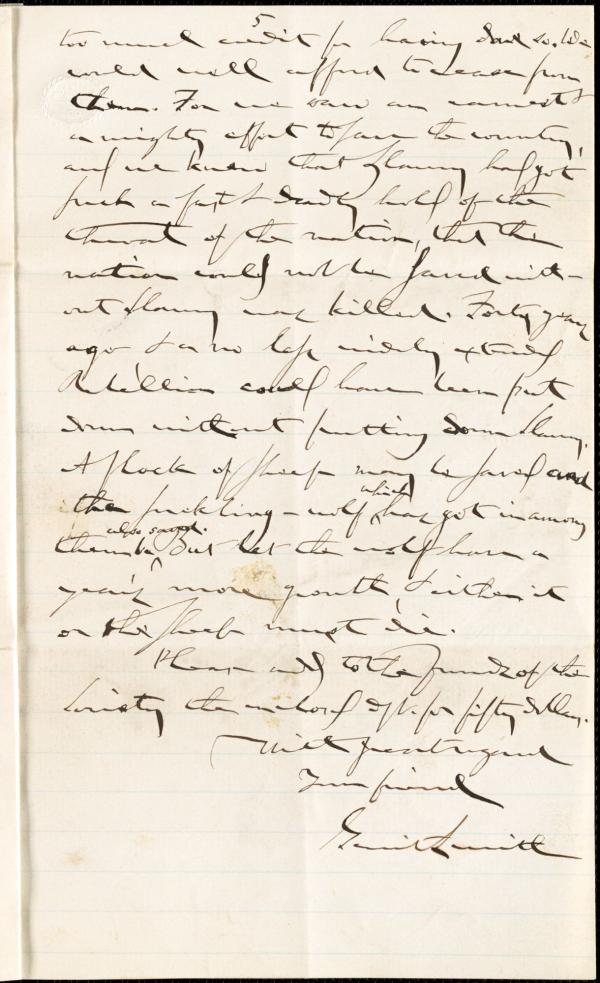 5
too much credit for having done so. We
could well afford to cease from
them. For we saw an earnest &
a mighty effort to save the country,
and we knew that slavery had got
such a fast & deadly hold of the
throat of the nation, that the
nation could not be saved with-
out slavery was killed. Forty years
ago & a no less widely extended
Rebellion could have been put
down without putting down slavery.
A flock of sheep may be saved and
the suckling-wolf which has got in among
them be also saved. But let the wolf have a
year's more growth, & either it
or the sheep must die.
Please add to the funds of the
Society the enclosed dft. for fifty dollars.
With great regard
Your friend
Gerrit Smith